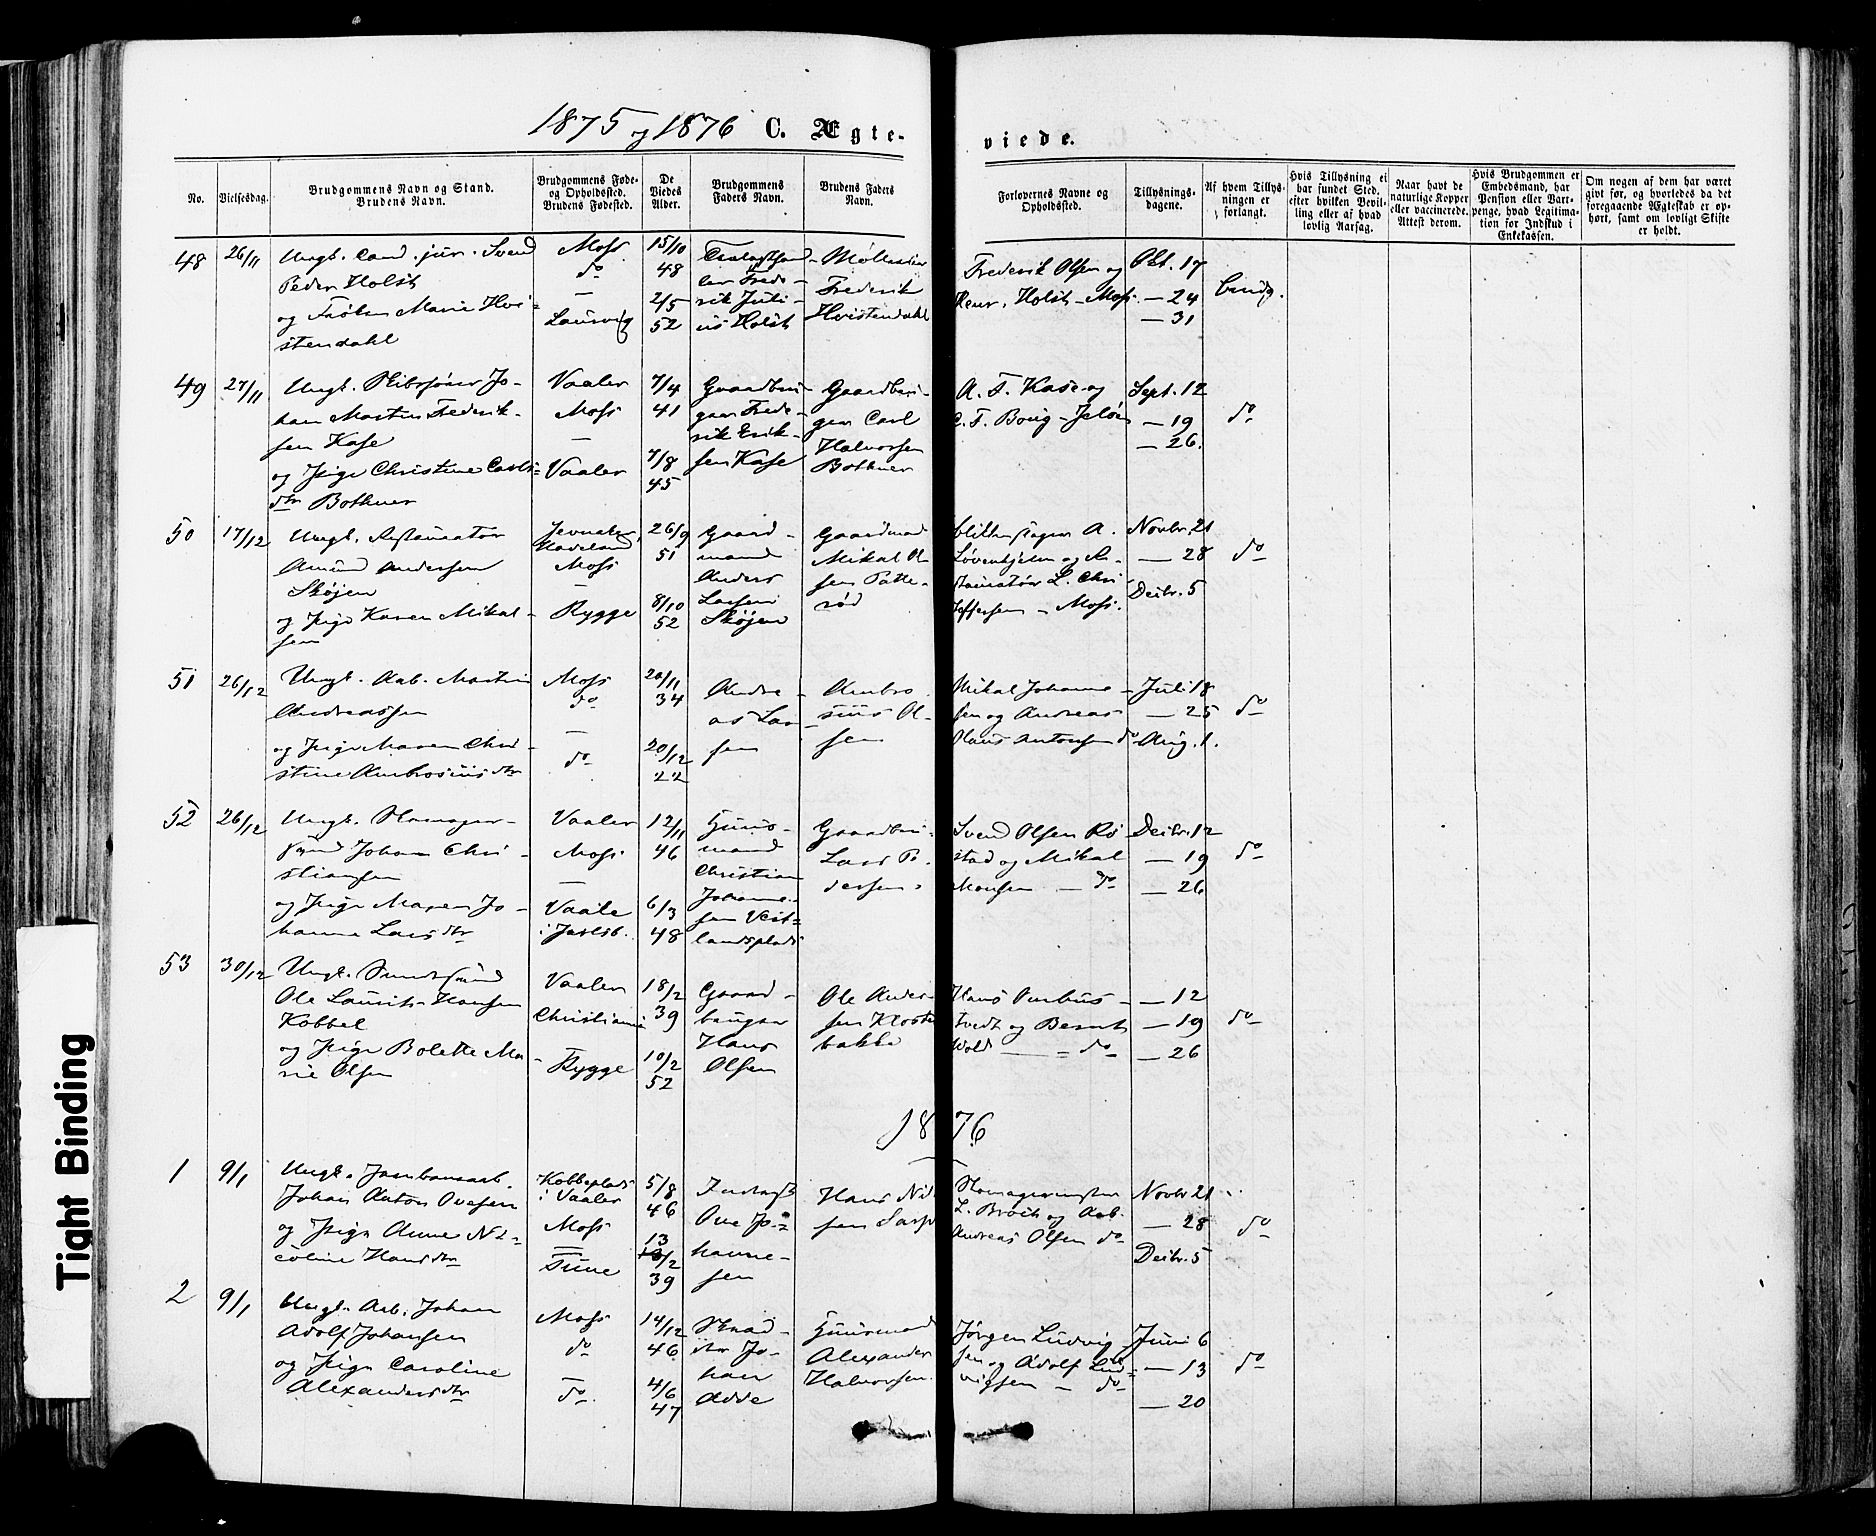 1875 og 1876 C. Ægteviede.
No.
Vielsesdag.
Brudgommens Navn og Stand.
Brudens Navn.
Brudgommens Føde-
og Opholdssted.
Brudens Fødested.
De
Viedes
Alder.
Brudgommens
Faders Navn.
Brudens Faders
Navn.
Forlovernes Navne og
Opholdssted.
Tillysnings-
dagene.
Af hvem Tillys-
ningen er
forlangt.
Hvis Tillysning ei
har fundet Sted,
efter hvilken Bevil-
ling eller af hvad
lovlig Aarsag.
Naar havt de
naturlige Kopper
eller vaccinerede.
Attest derom.
Hvis Brudgommen er
Embedsmand, har
Pension eller Vart-
penge, hvad Legitima-
tion for Indskud i
Enkekassen.
Om nogen af dem har været
gift før, og hvorledes da det
foregaaende Ægteskab er op-
hørt, samt om lovligt Skifte
er holdt.
48
26/11
Ungk. Cand. jur. Svend
Peder Holst
og Frøken Marie Hvi-
stendahl
Moss
do
—
Laurvig
15/10
48
2/5
52
Frede-
rik Juli-
us Holst
Frederik
Hvistendahl
Frederik Olsen og
Henr. Holst – Moss.
Okt. 17
— 24
— 31
49
27/11
Ungk. Skibsfører Jo-
han Martin Frederik-
sen Kase
og Pige Christine Carls-
dtr Bothner
Vaaler
Moss
—
Vaaler
7/4
41
7/8
45
Gaardbru-
ger Frede-
rik Erik-
sen Kase
Gaardbru-
ger Carl
Halvorsen
Bothner
A. F. Kase og
C. F. Boug – Jeløen
Sept. 12
— 19
— 26.
do
50
17/12
Ungk. Restauratør
Amund Andersen
Skøjen
og Pige Karen Mikal-
sen
Jevnaker,
Hadeland
Moss
—
Rygge
26/9
51
8/10
52
Gaard-
mand
Anders
Larsen
Skøjen
Gaardmand
Mikal Ol-
sen Patte-
rød
A.
Løvenhjelm og Re-
stauratør L. Chri
stoffersen – Moss.
Novbr. 21
— 28
Decbr. 5
do
51
26/12
Ungk. Arb. Martin
Andreassen
og Pige Maren Chri-
stine Ambrosiusdtr
Moss
do
—
do
20/11
34
20/12
22
Andre-
as Lar-
sen
Ambro-
sius Ol-
sen
Mikal Johanne-
sen og Andreas
Hans Antonsen do
Juli 18
— 25
Aug. 1.
do
52
26/12
Ungk. Skomager-
svend Johan Chri-
stiansen
og Pige Maren Jo-
hanne Larsdtr
Vaaler
Moss
—
Vaale
i Jarlsb.
12/11
46
6/3
48
Huus-
mand
Christian
Johanne-
sen Vest-
landsplads
Gaardbru-
Lars Pe-
dersen.
Svend Olsen Rø
stad og Mikal
Monsen — do
Decbr. 12
— 19
— 26
do
53
30/12
Ungk.
Ole Laurits Hansen
Kobbel
og Pige Bolette Ma-
rie Olsen
Vaaler
Christiania
—
Rygge
18/2
39
10/2
52
Gaard-
bruger
Hans
Olsen
Ole Ander-
sen Kloster
bakke
Hans
tvedt og Bernt
Wold — do
— 12
— 19
— 26
do
1876
1
9/1
Ungk. Jernbanearb.
Johan Anton Ovesen
og Pige Anne Ni-
coline Hansdtr
Kobbeplads
i Vaaler
Moss
—
Tune
5/8
46
13/2
39
Ove Jo-
hanne-
sen
Hans Nil
sen
Skomagermester
L. Broch og Arb.
Andreas Olsen do
Novbr. 21
— 28
Decbr. 5
do
2
9/1
Ungk. Arb. Johan
Adolf Johansen
og Pige Caroline
Alexandersdtr
Moss
do
—
do
14/12
46
4/6
47
Skræd-
der Jo-
han
Adde
Huusmand
Alexander
Halvorsen
Jørgen Ludvig-
sen og Adolf Lud-
vigsen – do
Juni 6
— 13
— 20
do
Tight Binding